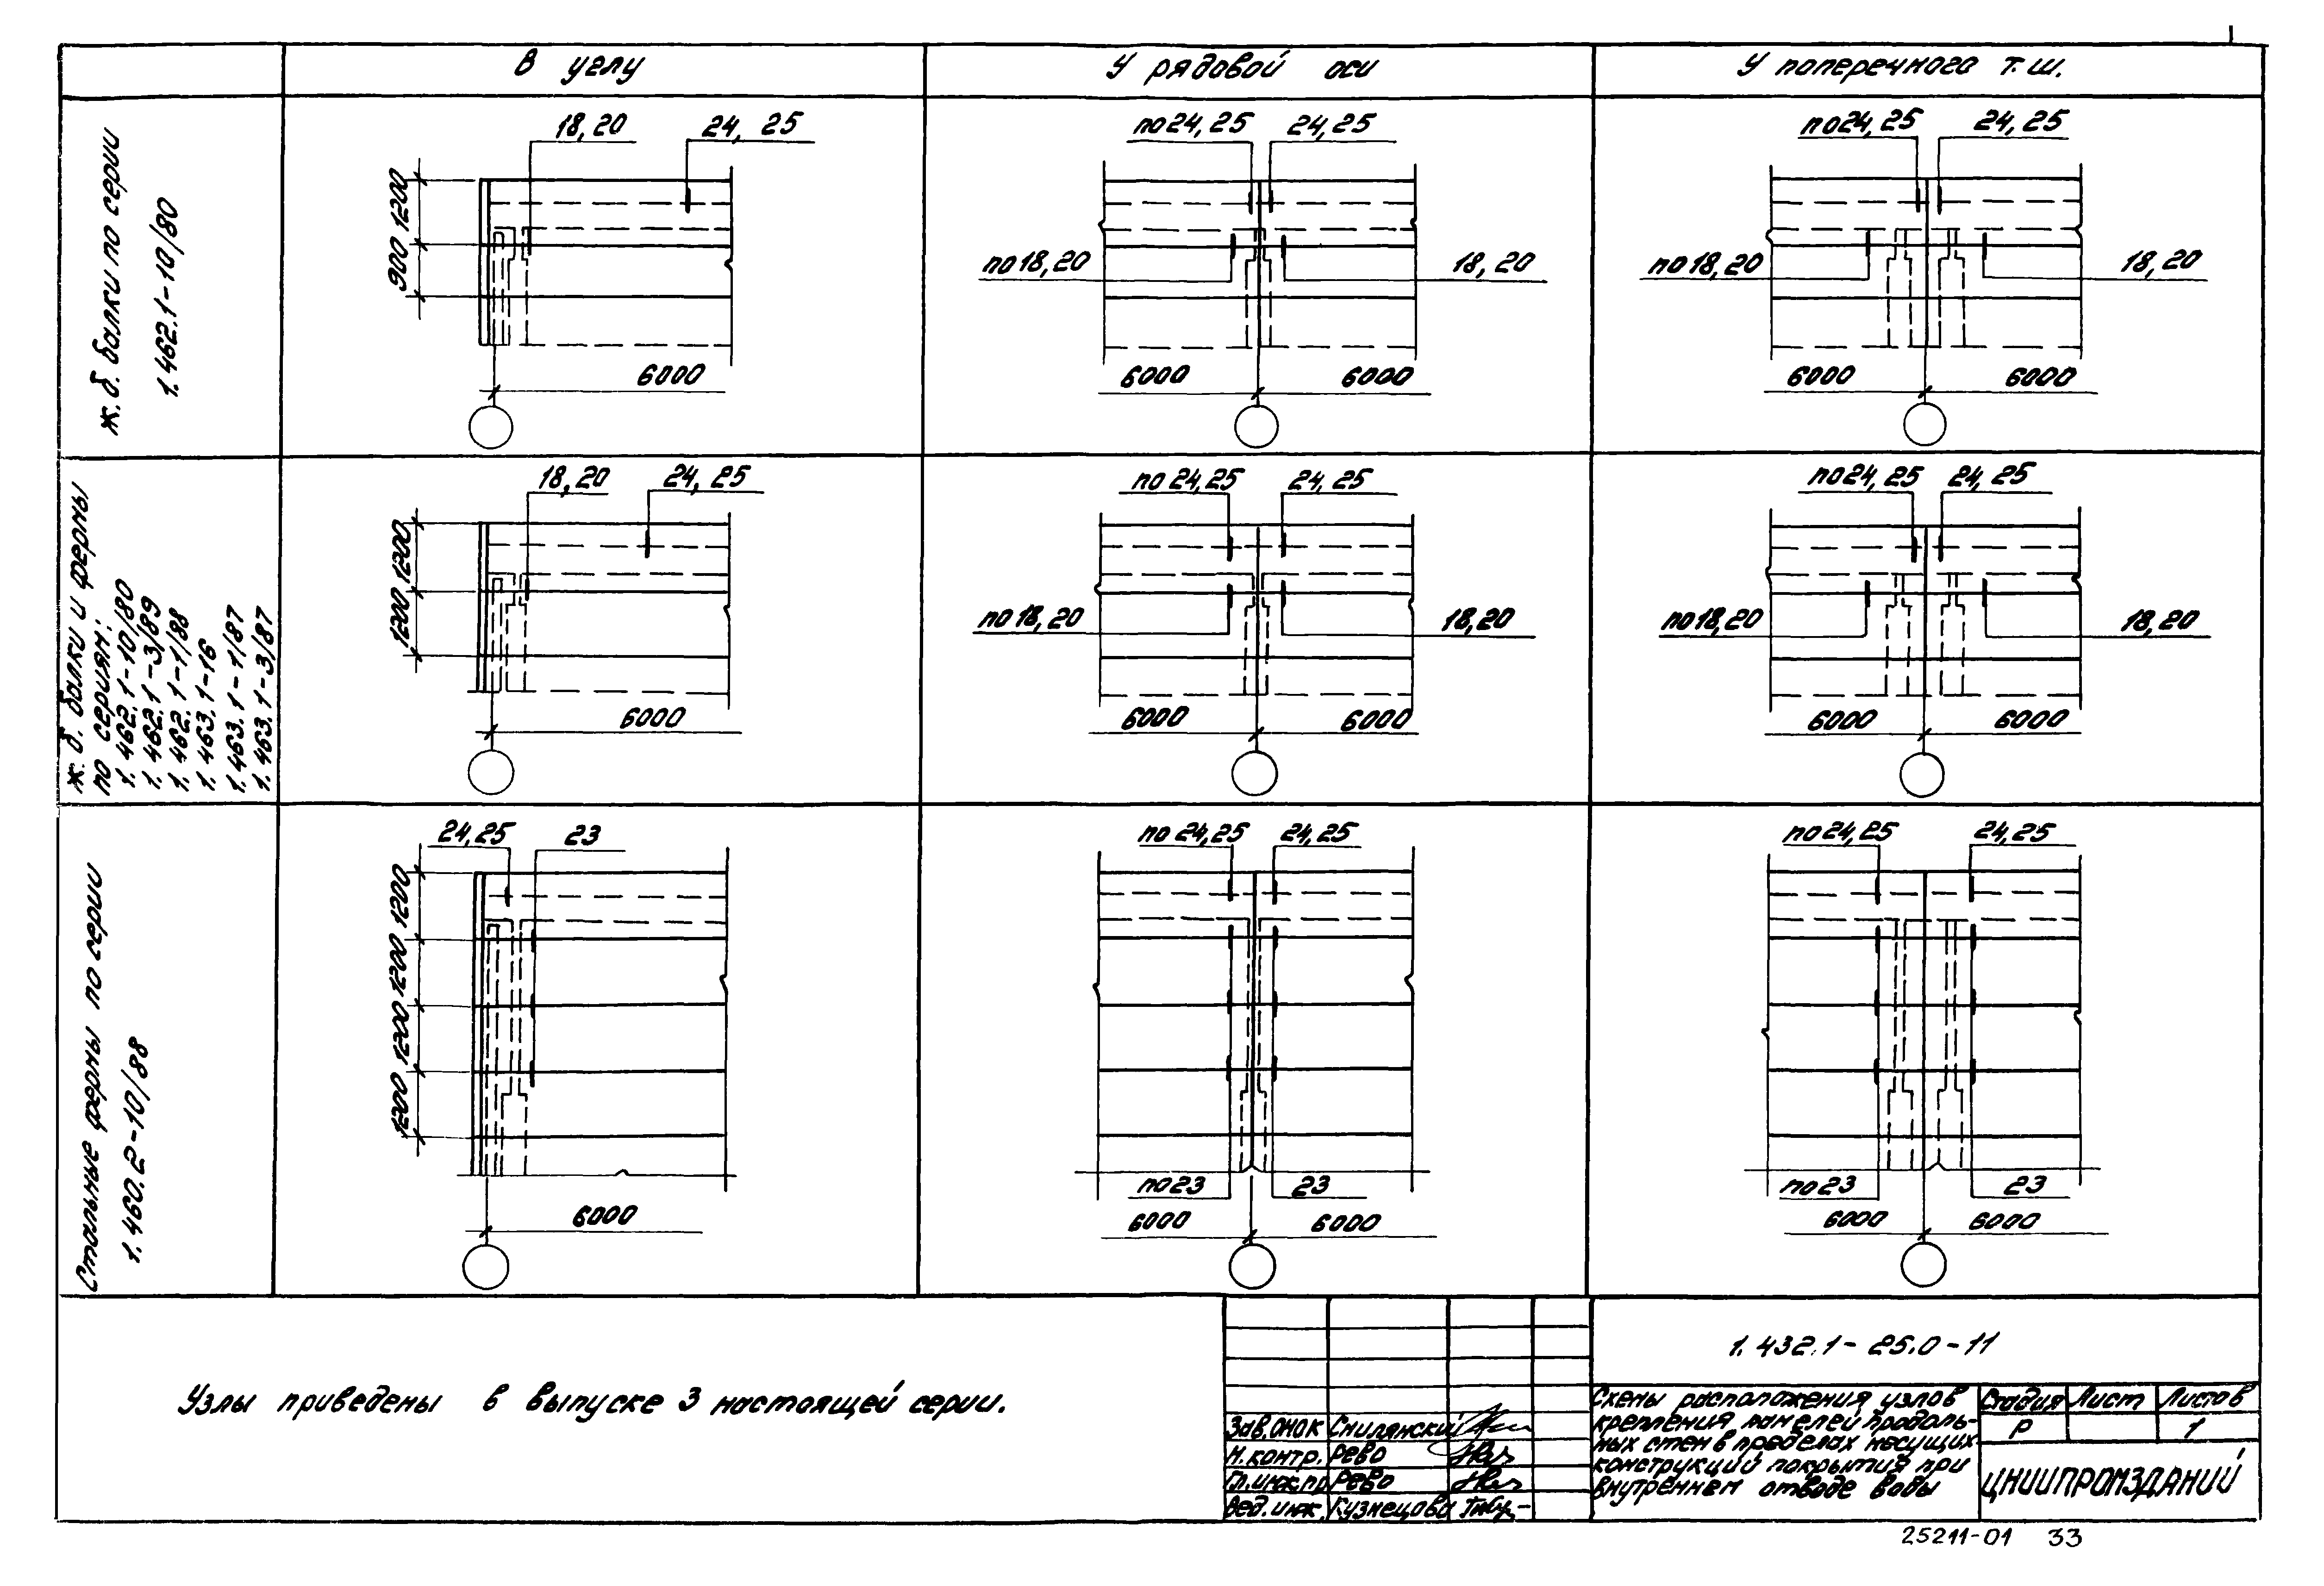 В углу
У рядовой оси
У поперечного т.ш.
ж.б. балки по серии
1.462.1-10/80
18,20
24, 25
1200
900
6000
по24,25
24,25
по18,20
18,20
6000
6000
по24,25
24,25
по18,20
18,20
6000
6000
ж.б. балки и фермы
по сериям:
1.462.1-10/80
1.462.1-3/89
1.462.1-1/88
1.463.1-16
1.463.1-1/87
1.463.1-3/87
18,20
24,25
1200
1200
6000
по24,25
24,25
по18,20
18,20
6000
6000
по24,25
24,25
по18,20
18,20
6000
6000
Стальные фермы по серии
1.460.2-10/88
24,25
23
1200
1200
1200
1200
6000
по24,25
24,25
по23
23
6000
6000
по24,25
24,25
по23
23
6000
6000
Узлы приведены в выпуске 3 настоящей серии.
1.432.1-25.0-11
Схемы расположения узлов
крепления панелей продоль-
ных стен в пределах несущих
конструкций покрытия при
внутреннем отводе воды
Стадия Лист Листов
Р 1
ЦНИИПРОМЗДАНИЙ
Зав.ОНОК Смилянский
Н.контр. Рево
Гл.инж.пр Рево
Вед.инж. Кузнецова
25211-01 33